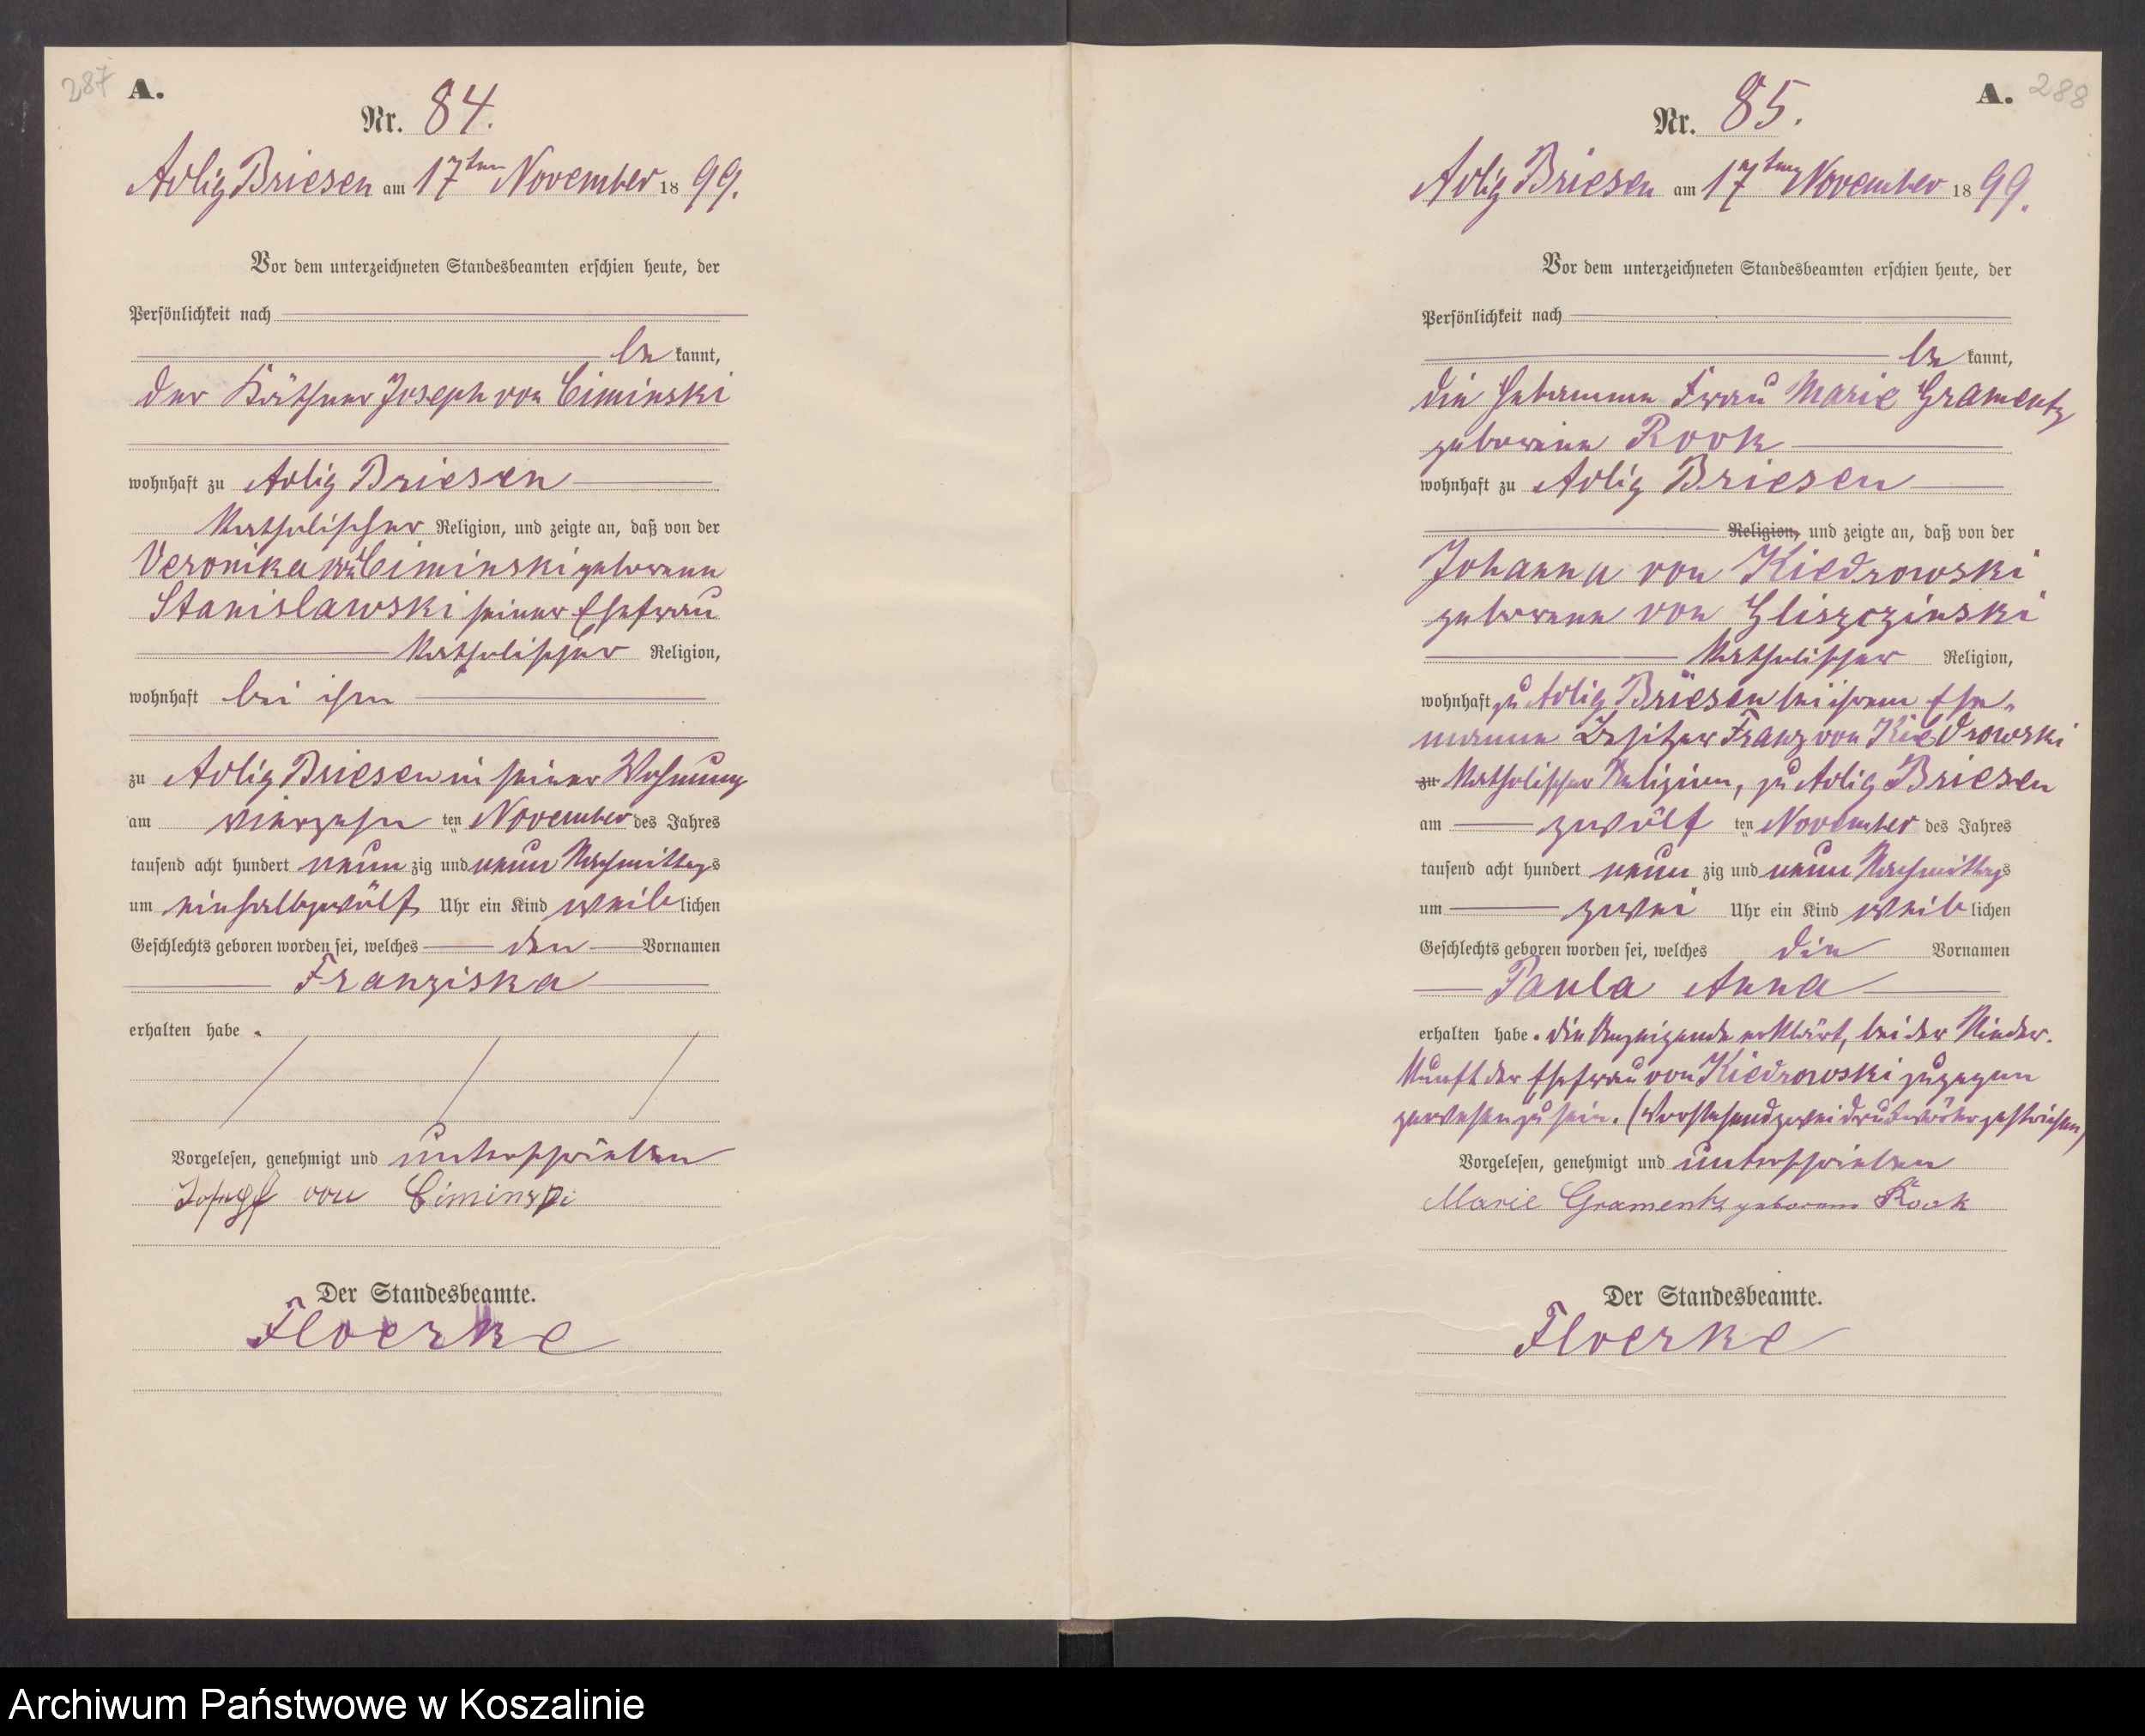 287
A.
Nr. 84.
Adlig Briesen am 17ten November 1899.
Vor dem unterzeichneten Standesbeamten erschien heute, der
Persönlichkeit nach
bekannt,
der Käthner Joseph von Ciminski
wohnhaft zu Adlig Briesen
Katholischer Religion, und zeigte an, daß von der
Veronika von Ciminski geborene
Stanislawski seiner Ehefrau
Katholischer Religion,
wohnhaft bei ihm
zu Adlig Briesen in seiner Wohnung
am vierzehn ten November des Jahres
tausend acht hundert neun zig und neun Nachmittags
um einhalbzwölf Uhr ein Kind weiblichen
Geschlechts geboren worden sei, welches den Vornamen
Franziska
erhalten habe.
Vorgelesen, genehmigt und unterschrieben
Josepf von Ciminski
Der Standesbeamte.
Floerke
A.
288
Nr. 85.
Adlig Briesen am 17ten November 1899.
Vor dem unterzeichneten Standesbeamten erschien heute, der
Persönlichkeit nach
bekannt,
die Hebamme Frau Marie Gramentz
geborene Rook
wohnhaft zu Adlig Briesen
Religion, und zeigte an, daß von der
Johanna von Kiedrowski
geborene von Gliszczinski
Katholischer Religion,
wohnhaft zu Adlig Briesen bei ihrem Ehe-
manne Besitzer Franz von Kiedrowski
zu Katholischer Religion, zu Adlig Briesen
am zwölf ten November des Jahres
tausend acht hundert neun zig und neun Nachmittags
um zwei Uhr ein Kind weiblichen
Geschlechts geboren worden sei, welches die Vornamen
Paula Anna
erhalten habe. Die Anzeigende erklärt, bei der Nieder-
kunft der Ehefrau von Kiedrowski zugegen
gewesen zu sein. (Vorstehend zwei Druckwörter gestrichen)
Vorgelesen, genehmigt und unterschrieben
Marie Gramentz geborene Rook
Der Standesbeamte.
Floerke
Archiwum Państwowe w Koszalinie